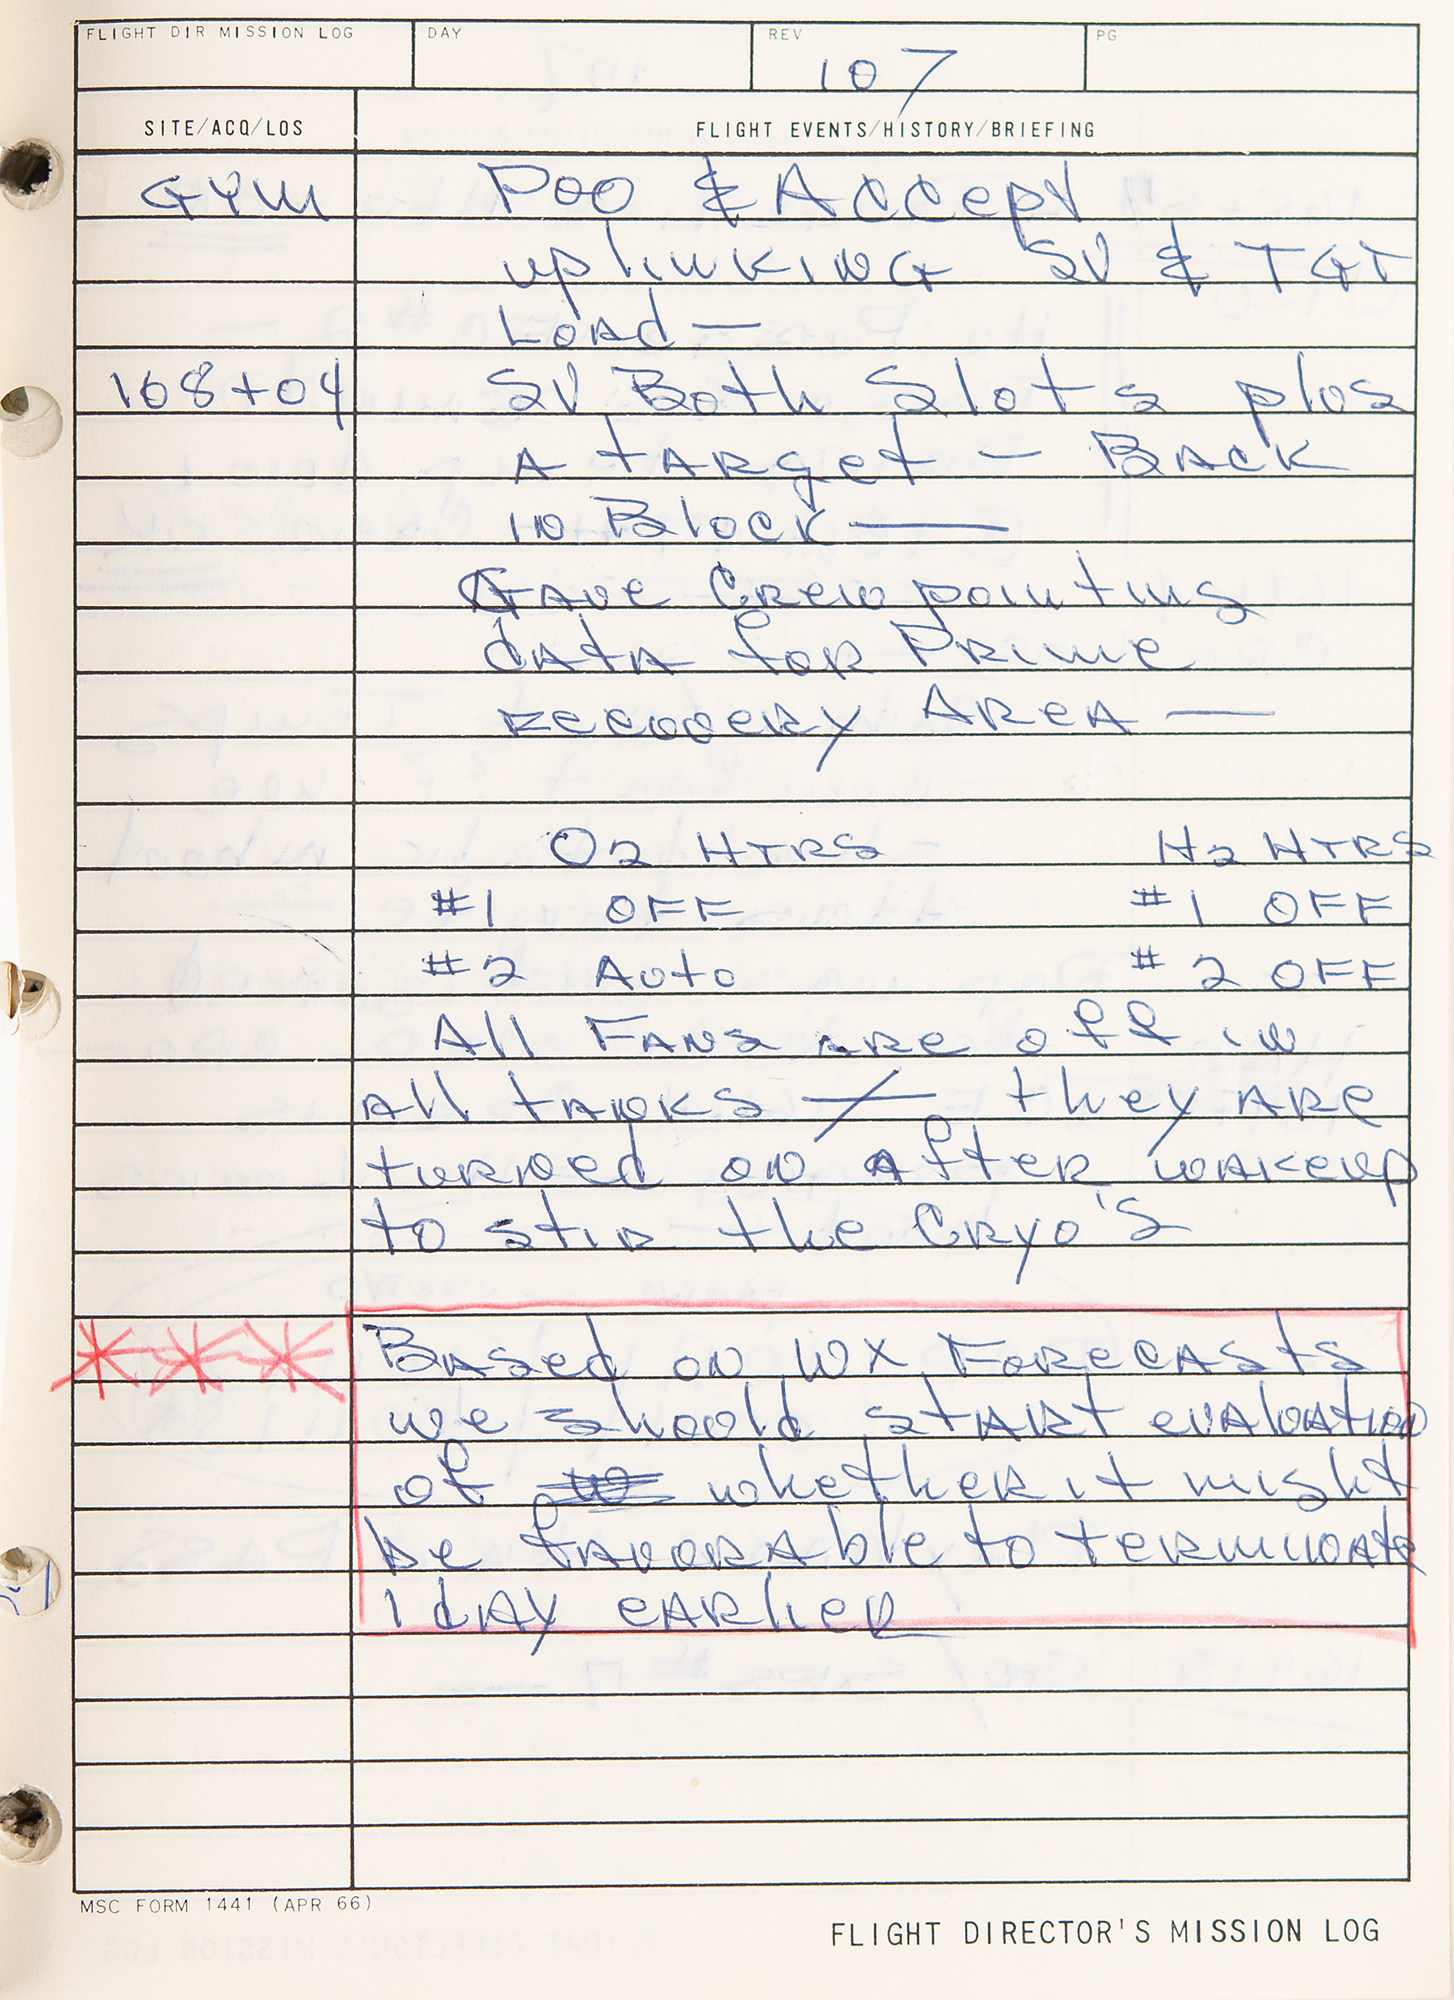 FLIGHT DIR MISSION LOG DAY REV 107 PG
SITE/ACQ/LOS FLIGHT EVENTS/HISTORY/BRIEFING
GYM POO & Accept
uplinking SV & TGT
Load —
168+04 SV Both Slots plus
A target — Back
in Block —
Gave Crew pointing
data for Prime
recovery Area —
O2 HTRS H2 HTRS
#1 OFF #1 OFF
#2 Auto #2 OFF
All Fans are off in
all tanks — they are
turned on after wakeup
to stir the Cryo's
*** Based on WX Forecasts
we should start evaluation
of whether it might
be favorable to terminate
1 day earlier
MSC FORM 1441 (APR 66)
FLIGHT DIRECTOR'S MISSION LOG